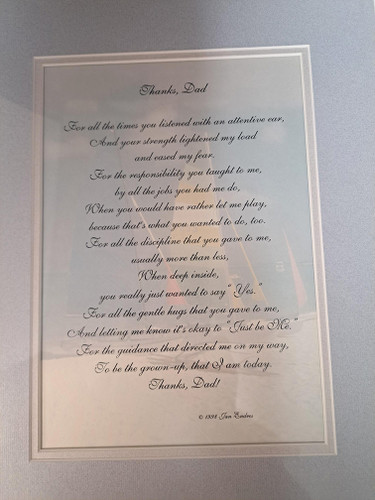 Thanks, Dad
For all the times you listened with an attentive ear,
And your strength lightened my load
and eased my fear.
For the responsibility you taught to me,
by all the jobs you had me do,
When you would have rather let me play,
because that's what you wanted to do, too.
For all the discipline that you gave to me,
usually more than less,
When deep inside,
you really just wanted to say "Yes."
For all the gentle hugs that you gave to me,
And letting me know it's okay to "Just be Me."
For the guidance that directed me on my way,
To be the grown-up, that I am today.
Thanks, Dad!
©